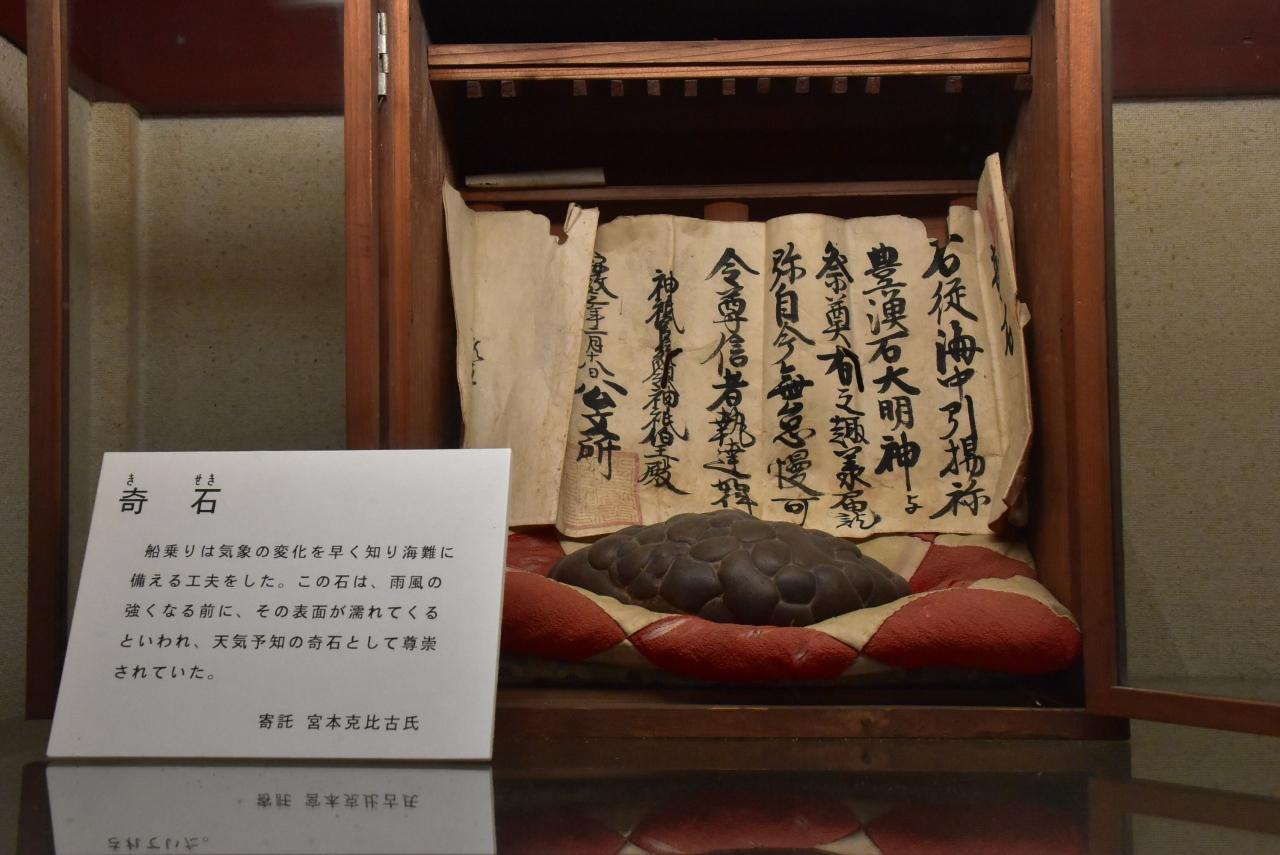 奇石
きせき
船乗りは気象の変化を早く知り海難に
備える工夫をした。この石は、雨風の
強くなる前に、その表面が濡れてくる
といわれ、天気予知の奇石として尊崇
されていた。
寄託 宮本克比古氏
石従海中引揚祢
豊漁石大明神与
祭奠有之趣義届
弥自今無怠慢可
令尊信者執達
神祇伯王殿
年二月十八日 公文所